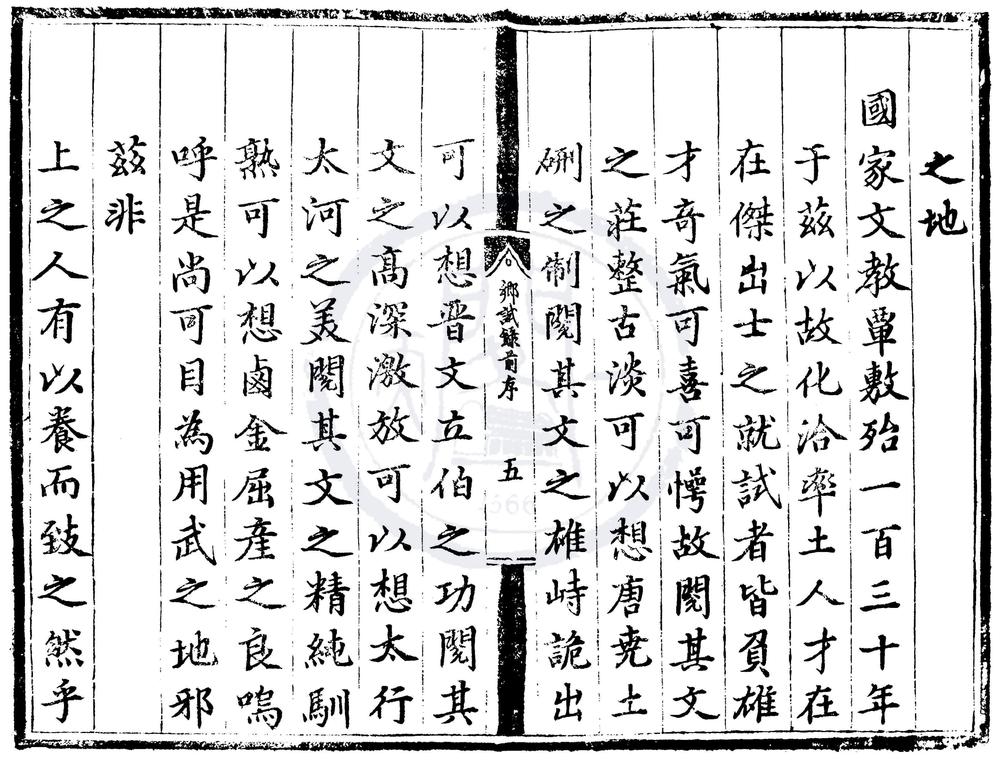 之地
國家文教覃敷殆一百三十年
于茲以故化洽率土人才在
在傑出士之就試者皆負雄
才奇氣可喜可愕故閱其文
之莊整古淡可以想唐堯土
硎之制閱其文之雄峙詭出
鄉試錄前序 五
可以想晋文立伯之功閱其
文之髙深激放可以想太行
太河之美閱其文之精純馴
熟可以想鹵金屈產之良嗚
呼是尚可目為用武之地邪
茲非
上之人有以養而致之然乎